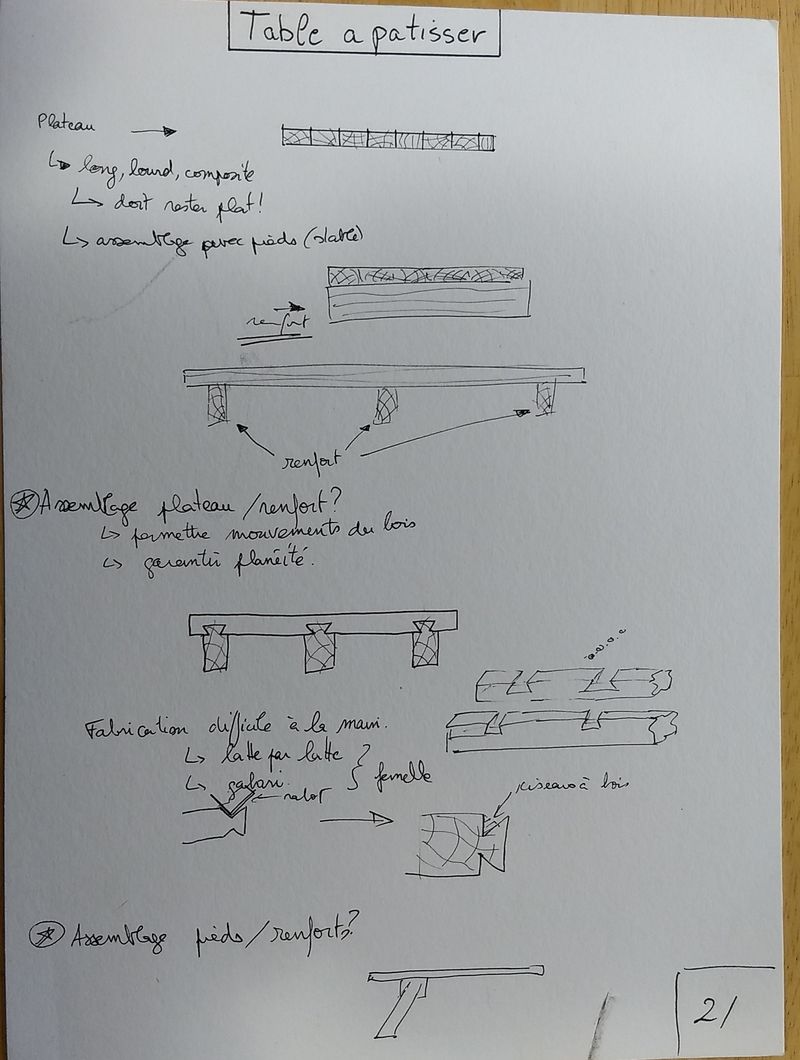 Table a patisser
Plateau
↳ long, lourd, composite
↳ doit rester plat!
↳ assemblage avec pieds (stable)
renfort
renfort
Assemblage plateau/renfort?
↳ permettre mouvements du bois
↳ garantir planéité.
Fabrication difficile à la main.
↳ latte par latte
↳ gabari.
femelle
rabot
ciseaux à bois
Assemblage pieds/renforts?
2/